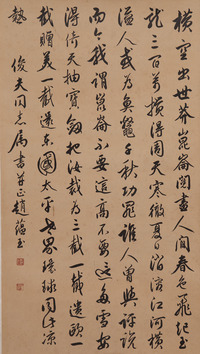 橫空出世莽崑崙閱盡人間春色飛起玉
龍三百萬攪得周天寒徹夏日消溶江河橫
溢人或為魚鱉千秋功罪誰人曾與評說
而今我謂崑崙不要這高不要這多雪安
得倚天抽寶劍把汝裁為三截一截遺歐一
截贈美一截還東國太平世界環球同此涼
熱 俊夫同志屬書并正 趙蘊玉